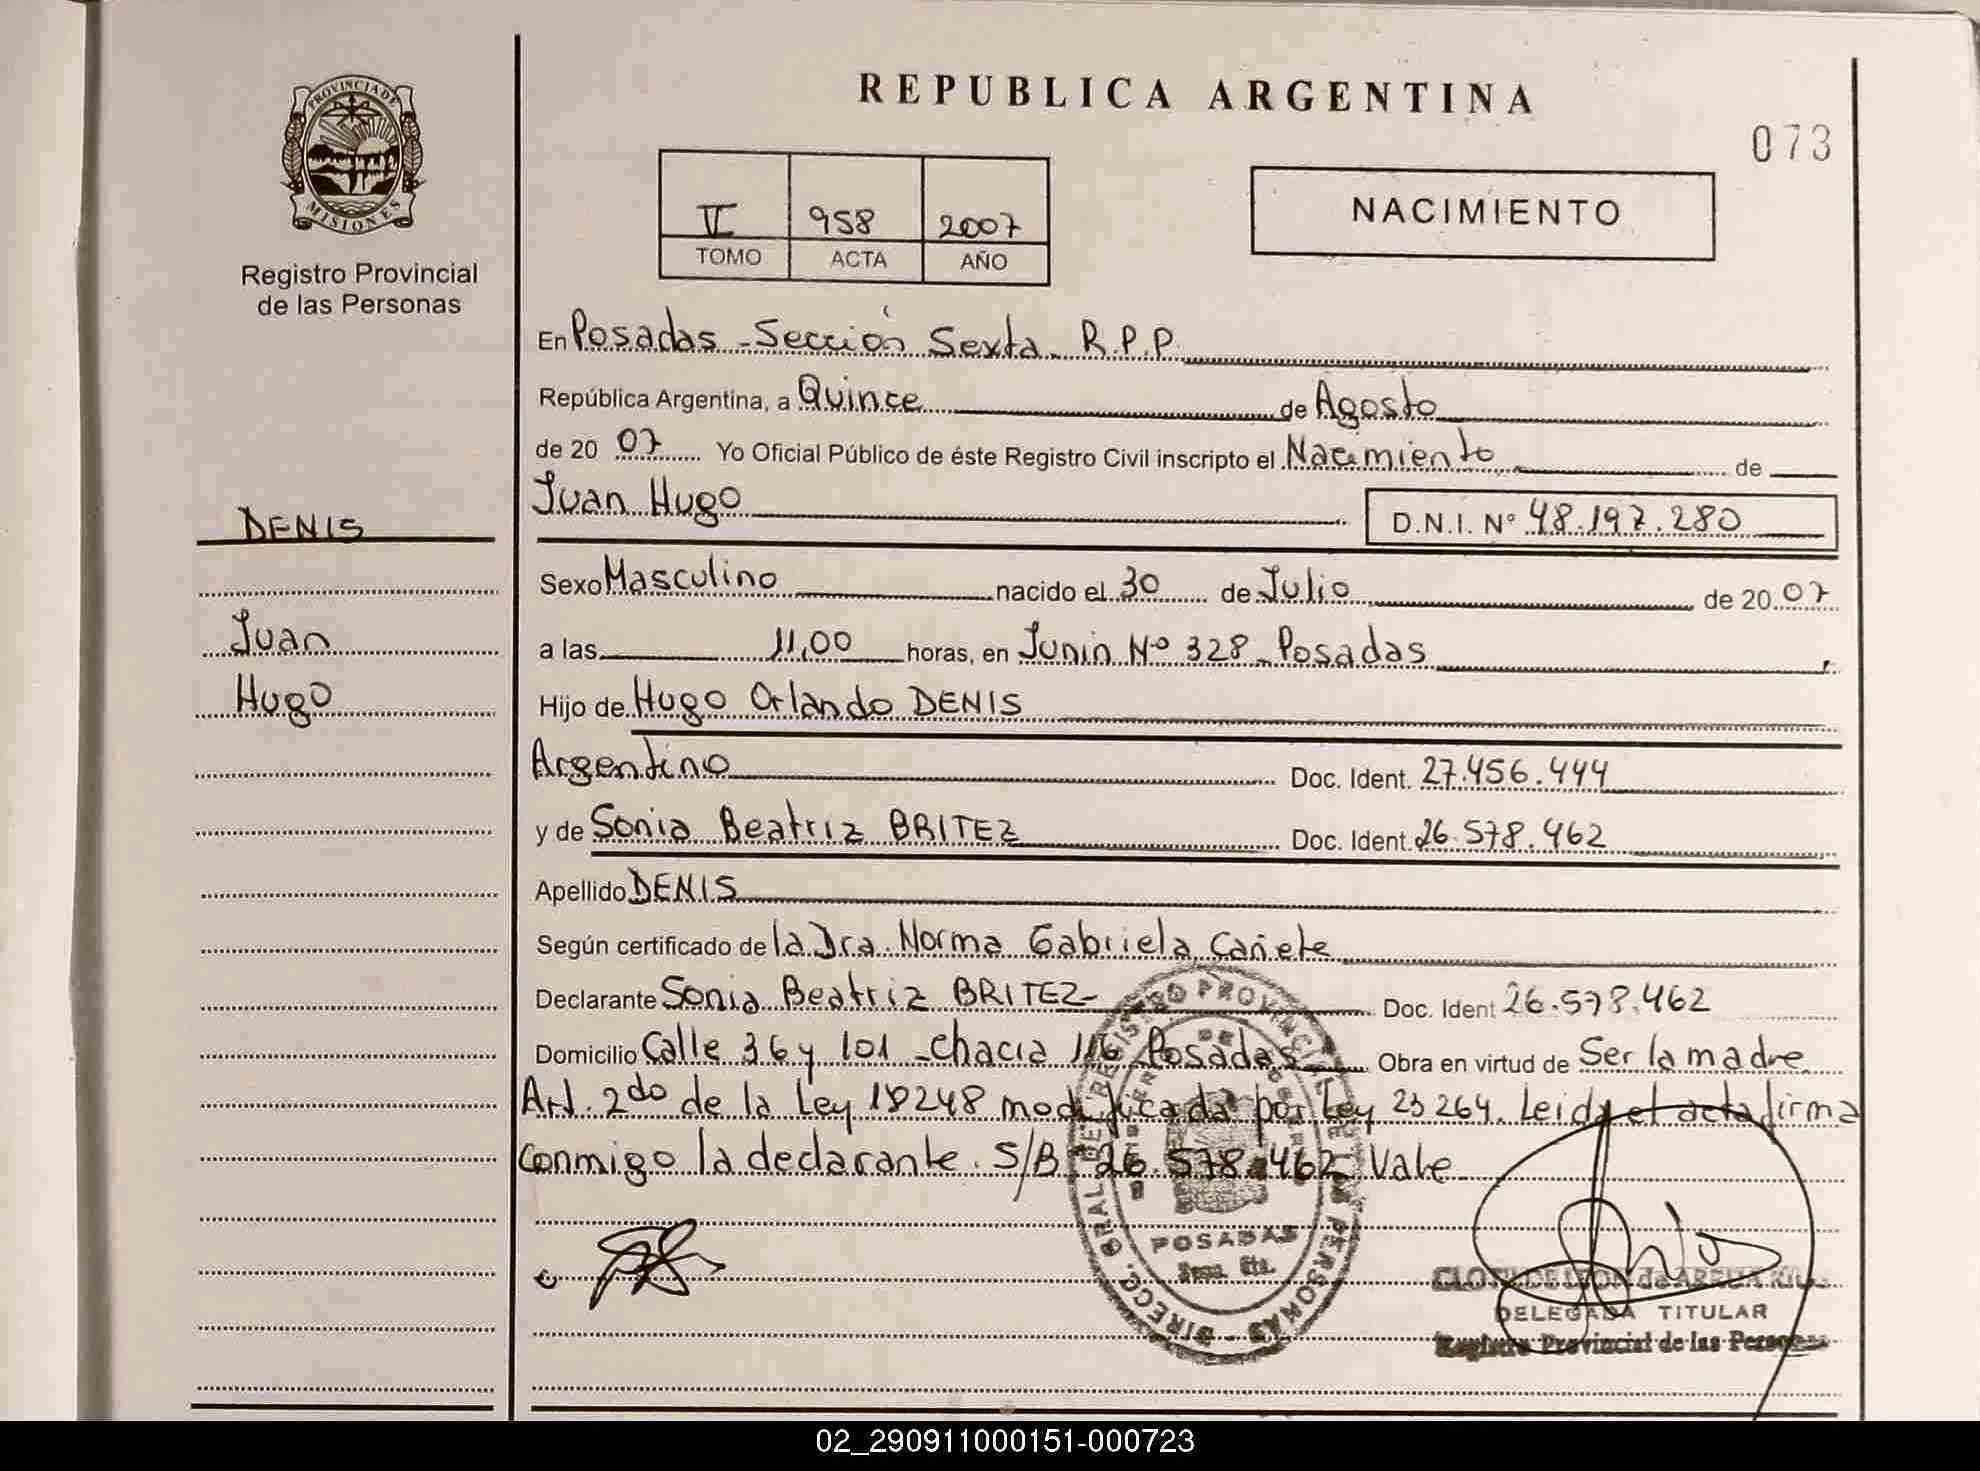 REPUBLICA ARGENTINA
073
PROVINCIA DE
MISIONES
Registro Provincial
de las Personas
V 958 2007
TOMO ACTA AÑO
NACIMIENTO
En Posadas - Sección Sexta. R.P.P.
República Argentina, a Quince de Agosto
de 20 07 Yo Oficial Público de éste Registro Civil inscripto el Nacimiento de
Juan Hugo D.N.I. Nº 48.197.280
DENIS
Juan
Hugo
Sexo Masculino nacido el 30 de Julio de 20 07
a las 11,00 horas, en Junin Nº 328 Posadas
Hijo de Hugo Orlando DENIS
Argentino Doc. Ident. 27.456.444
y de Sonia Beatriz BRITEZ Doc. Ident. 26.578.462
Apellido DENIS
Según certificado de la Dra. Norma Gabriela Cañete
Declarante Sonia Beatriz BRITEZ- Doc. Ident 26.578.462
Domicilio Calle 36 y 101 - Chacra 116 Posadas Obra en virtud de Ser la madre
Art. 2do de la Ley 18248 modificada por Ley 23264. Leida el acta firma
conmigo la declarante. S/B 26.578.462 Vale
DIRECC. GRAL. DE REGISTRO PROVINCIAL DE LAS PERSONAS
POSADAS
Secc. 6ta.
DELEGADA TITULAR
Registro Provincial de las Personas
02_290911000151-000723